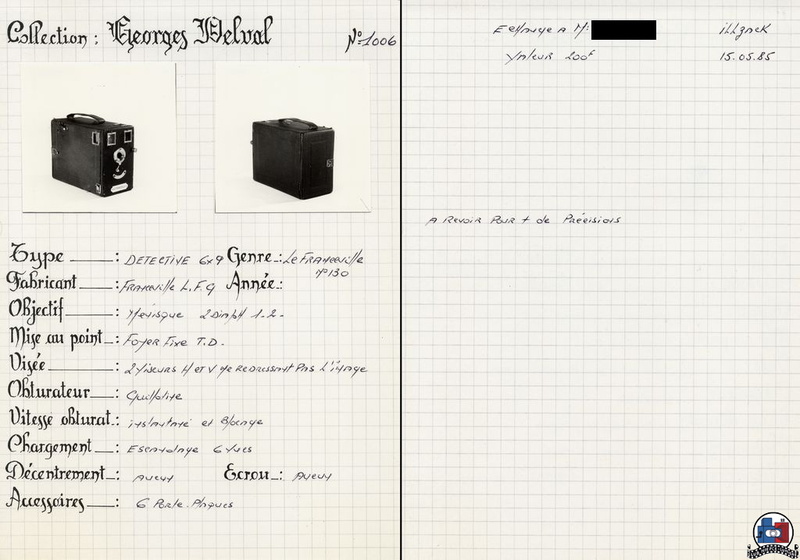 Collection : Georges Delval
N° 1006
Type : DETECTIVE 6x9 Genre : Le Franceville
n° 130
Fabricant : Franceville L.F.G Année :
Objectif : Ménisque 2 Diaph 1.2.
Mise au point : Foyer Fixe T.D.
Visée : 2 Viseurs H et V ne redressant Pas L'image
Obturateur : Guillotine
Vitesse obturat. : instantané et Blocage
Chargement : Escamotage 6 Vues
Décentrement : Aucun Ecrou : Aucun
Accessoires : 6 Porte-Plaques
Echange A Mr
illzack
Valeur 200F
15.05.85
A Revoir Pour + de Précisions